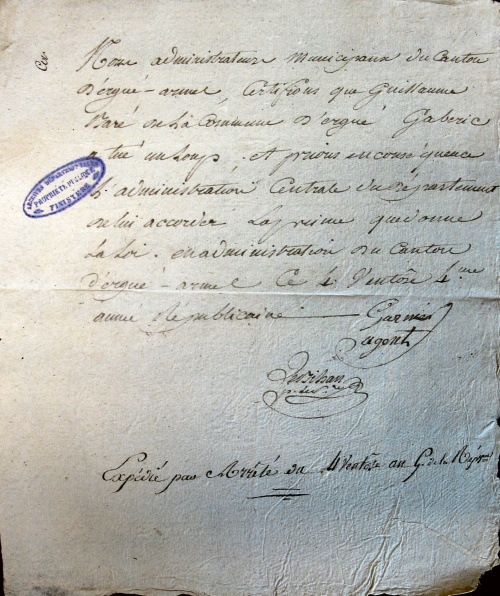 Nous administrateurs municipaux du Canton
D'ergué-armel, Certifions que Guillaume
Baré de la Commune D'ergué Gaberic
a tué un Loup. et prions en conséquence
L'administration Centrale du Département
de lui accorder La prime que donne
La Loi. en administration du Canton
d'ergué-armel Ce 4 Ventôse 4.me
année Républicaine
agent
ARCHIVES DÉPARTEMENTALES
PROPRIÉTÉ PUBLIQUE
FINISTÈRE
Expédié par Arrêté du 4 Ventôse an de la Rép